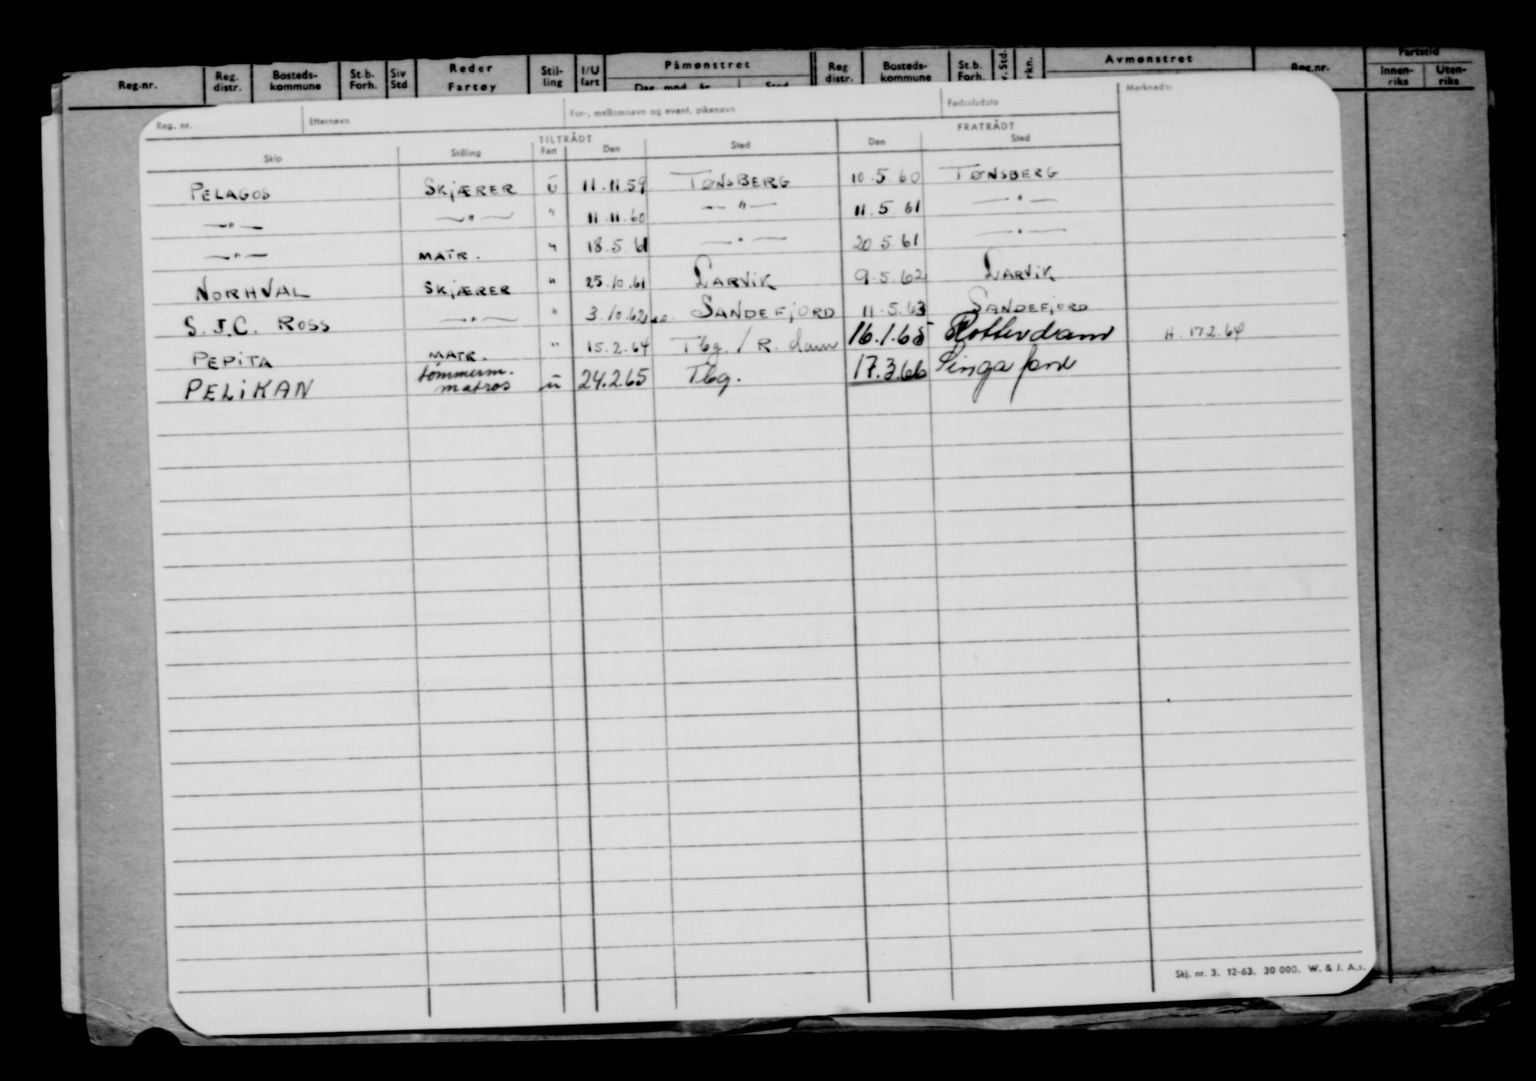 Reg.nr. Reg. distr. Bosteds- kommune St.b. Forh. Siv Std Reder Fartøy Stil- ling I/U fart Påmønstret Dag mnd. år Sted Reg distr. Bosteds- kommune St.b. Forh. Avmønstret Reg.nr. Fartstid Innen- riks Uten- riks
Reg. nr. Etternavn For-, mellomnavn og event. pikenavn Fødselsdato Merknader
TILTRÅDT FRATRÅDT
Skip Stilling Fart Den Sted Den Sted
PELAGOS SKJÆRER U 11.11.59 TØNSBERG 10.5.60 TØNSBERG
—"— —"— " 11.11.60 —"— 11.5 61 —"—
—"— MATR. " 18.5.61 —"— 20 5.61 —"—
NORHVAL SKJÆRER " 25.10.61 LARVIK 9.5.62 LARVIK
S.J.C. ROSS —"— " 3.10.62 SANDEFJORD 11.5.63 SANDEFJORD
PEPITA MATR. " 15.2.64 Tbg. / R.dam 16.1.65 Rotterdam H. 172.64
PELIKAN tømmerm. matros u 24.2.65 Tbg. 17.3.66 Singapore
Skj. nr. 3. 12-63. 30 000. W. & J. A.s.